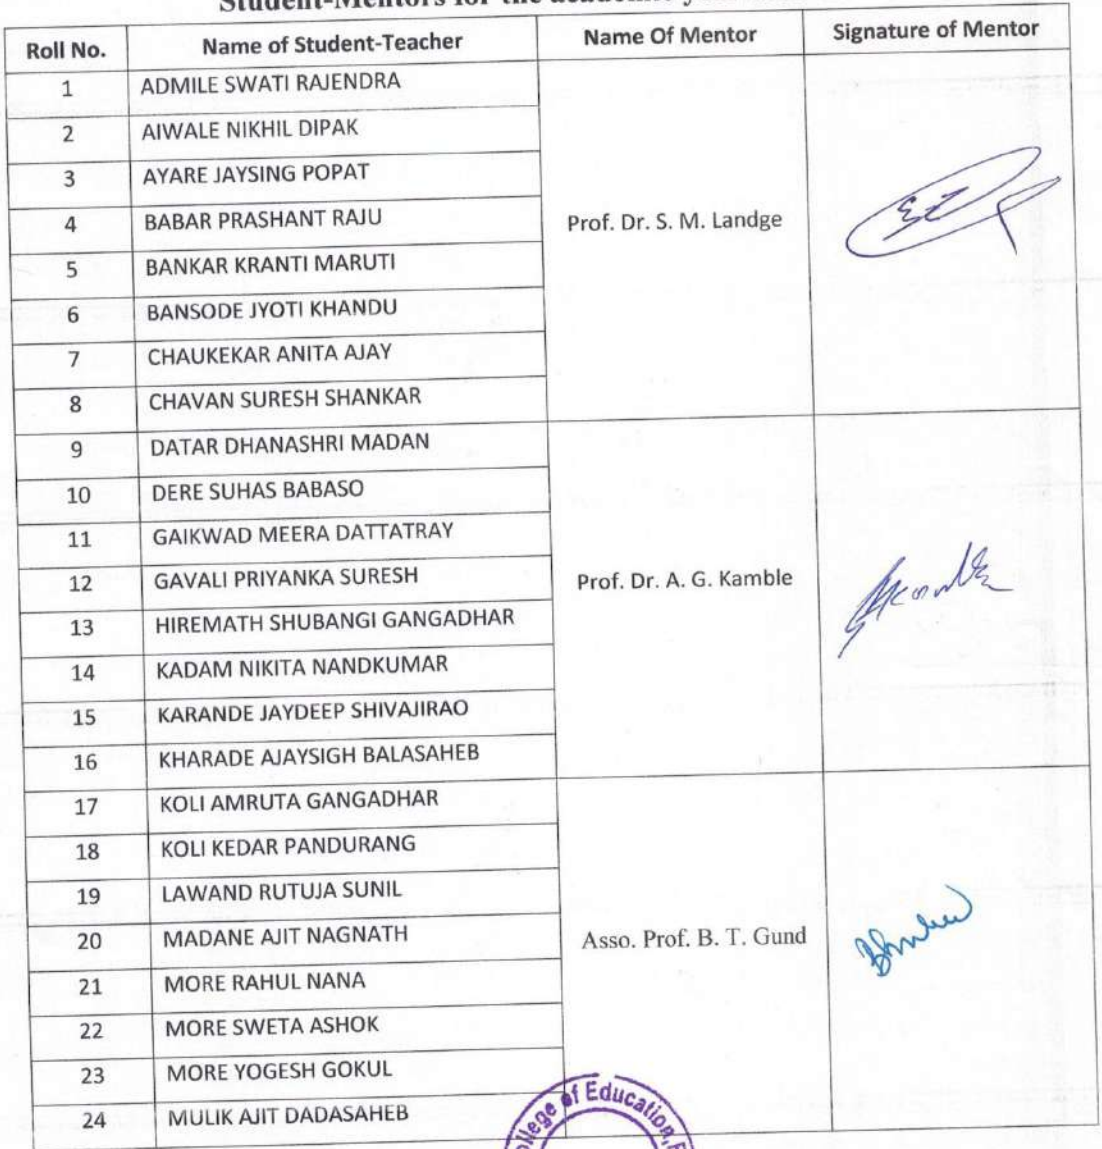 Student-Mentors for the academic
Roll No. Name of Student-Teacher Name Of Mentor Signature of Mentor
1 ADMILE SWATI RAJENDRA
2 AIWALE NIKHIL DIPAK
3 AYARE JAYSING POPAT
4 BABAR PRASHANT RAJU Prof. Dr. S. M. Landge
5 BANKAR KRANTI MARUTI
6 BANSODE JYOTI KHANDU
7 CHAUKEKAR ANITA AJAY
8 CHAVAN SURESH SHANKAR
9 DATAR DHANASHRI MADAN
10 DERE SUHAS BABASO
11 GAIKWAD MEERA DATTATRAY
12 GAVALI PRIYANKA SURESH Prof. Dr. A. G. Kamble
13 HIREMATH SHUBANGI GANGADHAR
14 KADAM NIKITA NANDKUMAR
15 KARANDE JAYDEEP SHIVAJIRAO
16 KHARADE AJAYSIGH BALASAHEB
17 KOLI AMRUTA GANGADHAR
18 KOLI KEDAR PANDURANG
19 LAWAND RUTUJA SUNIL
20 MADANE AJIT NAGNATH Asso. Prof. B. T. Gund
21 MORE RAHUL NANA
22 MORE SWETA ASHOK
23 MORE YOGESH GOKUL
24 MULIK AJIT DADASAHEB
of Education,